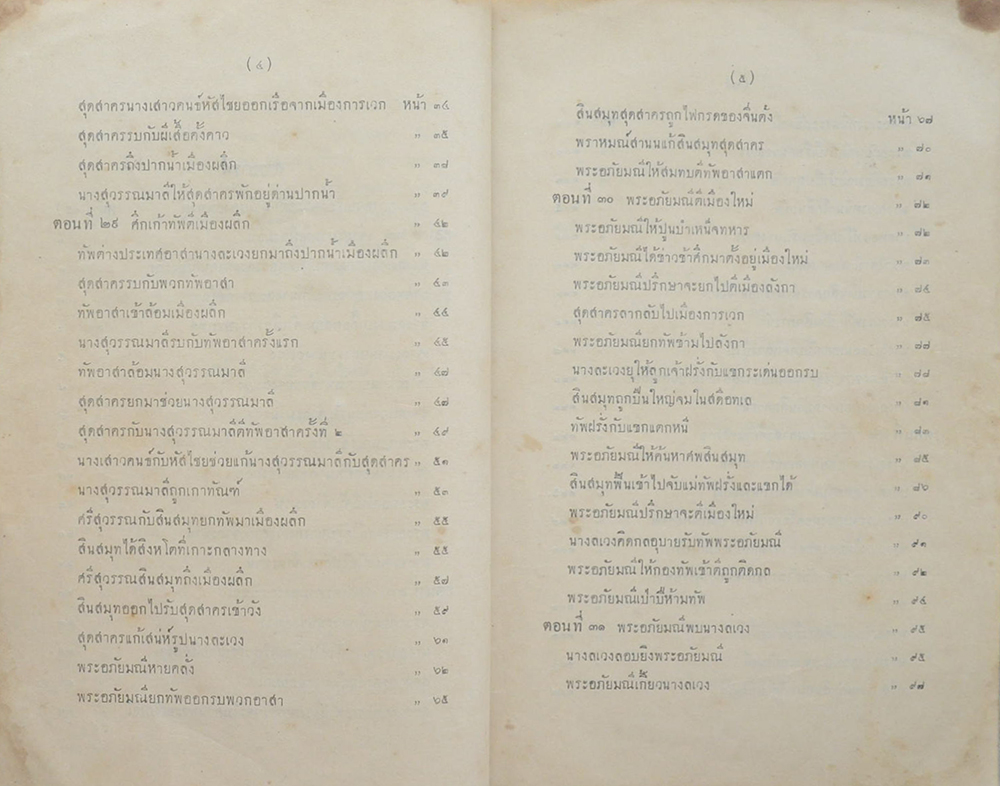 (๔)
สุดสาครนางเสาวคนธ์หัสไชยออกเรือจากเมืองการเวก หน้า ๓๔
สุดสาครรบกับผีเสื้อค้างคาว " ๓๕
สุดสาครถึงปากน้ำเมืองผลึก " ๓๘
นางสุวรรณมาลีให้สุดสาครพักอยู่ด่านปากน้ำ " ๓๙
ตอนที่ ๒๙ ศึกเก้าทัพตีเมืองผลึก " ๔๒
ทัพต่างประเทศอาสานางละเวงยกมาถึงปากน้ำเมืองผลึก " ๔๒
สุดสาครรบกับพวกทัพอาสา " ๔๓
ทัพอาสาเข้าล้อมเมืองผลึก " ๔๔
นางสุวรรณมาลีรบกับทัพอาสาครั้งแรก " ๔๕
ทัพอาสาล้อมนางสุวรรณมาลี " ๔๗
สุดสาครยกมาช่วยนางสุวรรณมาลี " ๔๗
สุดสาครกับนางสุวรรณมาลีตีทัพอาสาครั้งที่ ๒ " ๔๙
นางเสาวคนธ์กับหัสไชยช่วยแก้นางสุวรรณมาลีกับสุดสาคร " ๕๑
นางสุวรรณมาลีถูกเกาทัณฑ์ " ๕๓
ศรีสุวรรณกับสินสมุทยกทัพมาเมืองผลึก " ๕๕
สินสมุทได้สิงหโตที่เกาะกลางทาง " ๕๕
ศรีสุวรรณสินสมุทถึงเมืองผลึก " ๕๗
สินสมุทออกไปรับสุดสาครเข้าวัง " ๕๙
สุดสาครแก้เสน่ห์รูปนางละเวง " ๖๑
พระอภัยมณีหายคลั่ง " ๖๒
พระอภัยมณียกทัพออกรบพวกอาสา " ๖๕
(๕)
สินสมุทสุดสาครถูกไฟกรดของจีนตั๋ง หน้า ๖๗
พราหมณ์สานนแก้สินสมุทสุดสาคร " ๘๐
พระอภัยมณีให้สมทบตีทัพอาสาแตก " ๘๑
ตอนที่ ๓๐ พระอภัยมณีตีเมืองใหม่ " ๘๒
พระอภัยมณีให้ปูนบำเหน็จทหาร " ๘๒
พระอภัยมณีได้ข่าวข้าศึกมาตั้งอยู่เมืองใหม่ " ๘๓
พระอภัยมณีปรึกษาจะยกไปตีเมืองลังกา " ๘๔
สุดสาครลากลับไปเมืองการเวก " ๘๕
พระอภัยมณียกทัพข้ามไปลังกา " ๘๗
นางละเวงยุให้ลูกเจ้าฝรั่งกับแขกระเด่นออกรบ " ๘๘
สินสมุทถูกปืนใหญ่จมในสดือทเล " ๘๑
ทัพฝรั่งกับแขกแตกหนี " ๘๓
พระอภัยมณีให้ค้นหาศพสินสมุท " ๘๕
สินสมุทฟื้นเข้าไปจับแม่ทัพฝรั่งและแขกได้ " ๘๖
พระอภัยมณีปรึกษาจะตีเมืองใหม่ " ๙๐
นางลเวงคิดกลอุบายรับทัพพระอภัยมณี " ๙๑
พระอภัยมณีให้กองทัพเข้าตีถูกติดกล " ๙๒
พระอภัยมณีเป่าปี่ห้ามทัพ " ๙๔
ตอนที่ ๓๑ พระอภัยมณีพบนางลเวง " ๙๕
นางลเวงลอบยิงพระอภัยมณี " ๙๕
พระอภัยมณีเกี้ยวนางลเวง " ๙๗